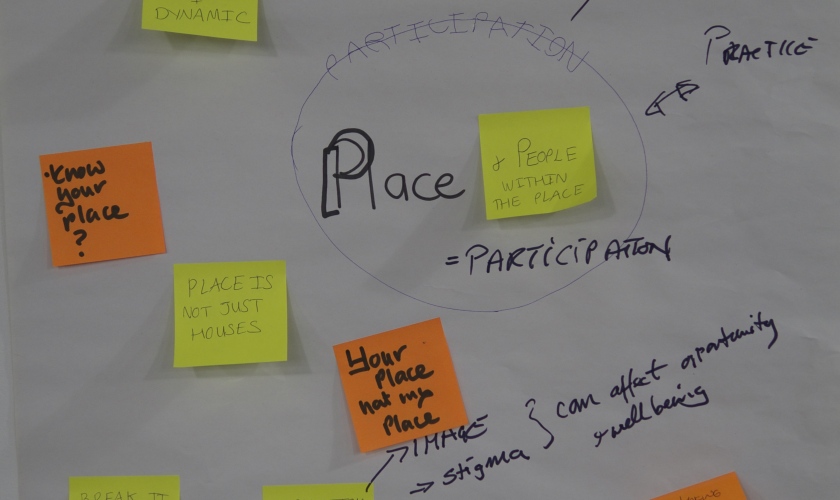 DYNAMIC
PARTICIPATION
PRACTICE
Place
& PEOPLE
WITHIN
THE PLACE
= PARTICIPATION
• Know
your
place
?
PLACE IS
NOT JUST
HOUSES
Your
Place
not my
Place
→ IMAGE
→ stigma
} can affect oportunity
& wellbeing
BREAK IT